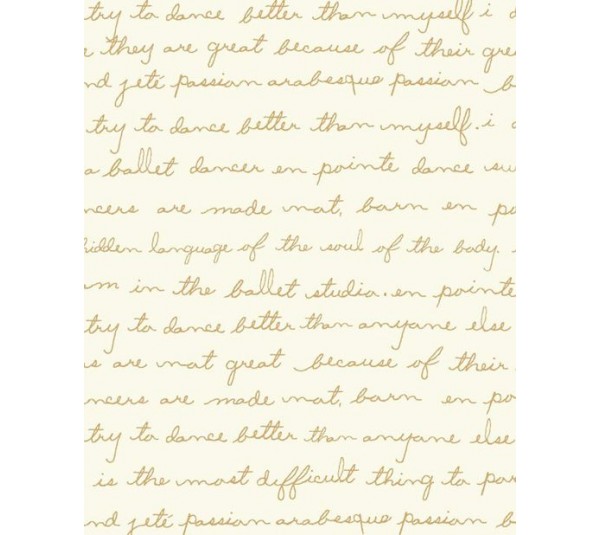 try to dance better than myself i
they are great because of their gre
nd jeté passion arabesque passion b
try to dance better than myself. i
a ballet dancer en pointe dance su
ncers are made not, born en po
hidden language of the soul of the body.
m in the ballet studio. en pointe
try to dance better than anyone else
s are not great because of their
ncers are made not, born en po
try to dance better than anyone else
is the most difficult thing to par
nd jeté passion arabesque passion b